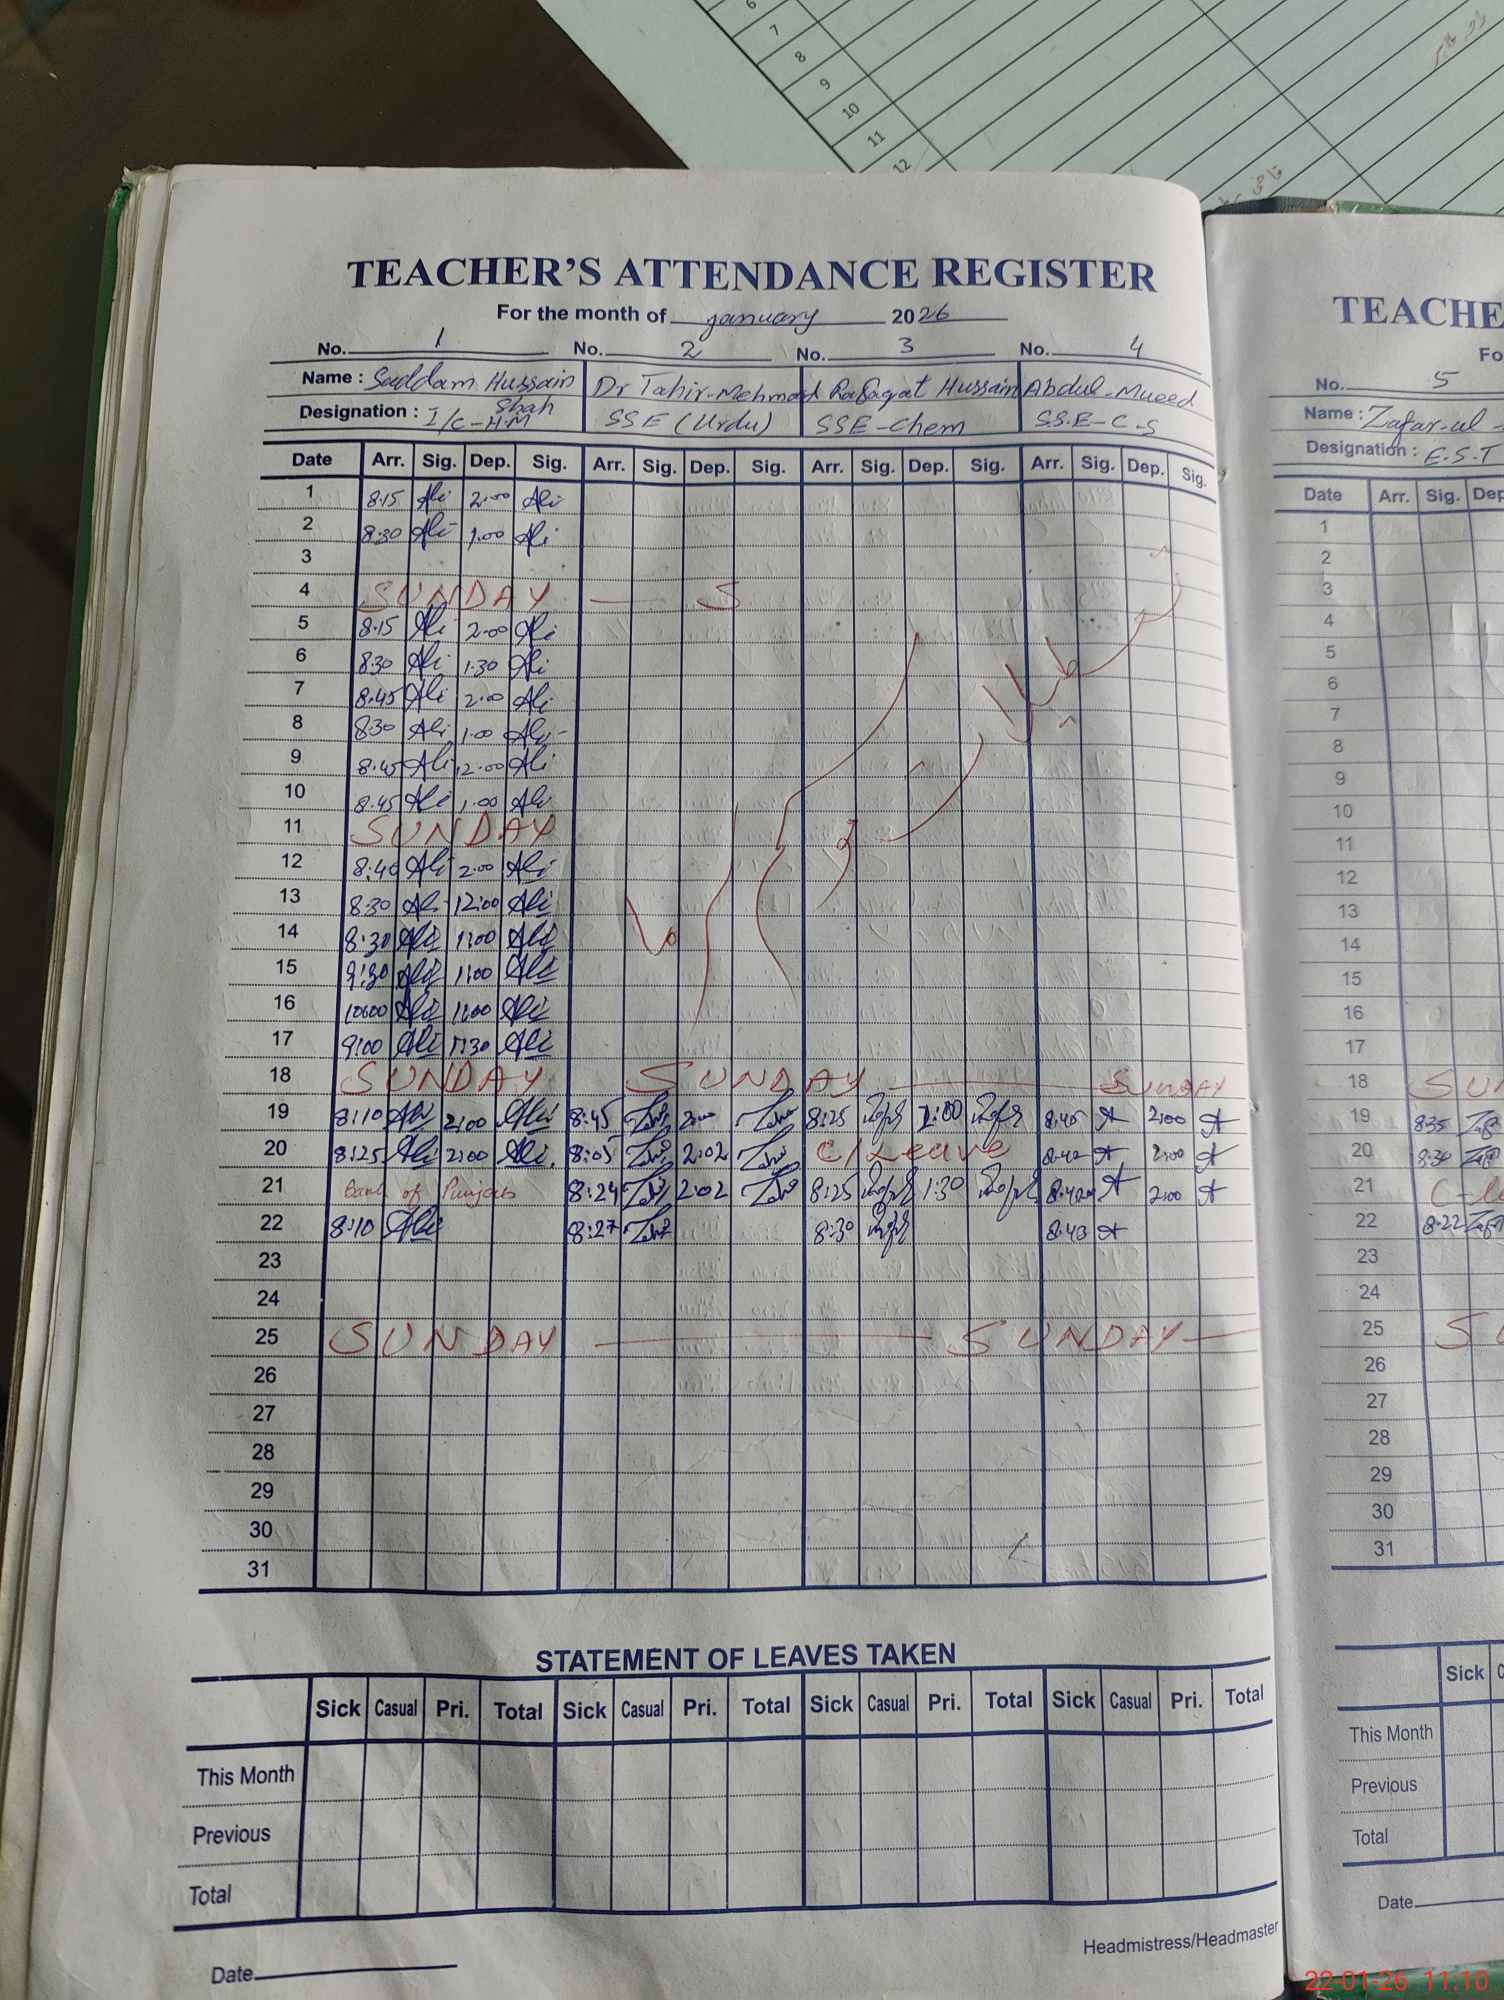 6
7
8
9
10
11
12
TEACHER'S ATTENDANCE REGISTER
For the month of january 2026
No. 1 No. 2 No. 3 No. 4
Name : Saddam Hussain Shah Dr Tahir Mehmood Rafaqat Hussain Abdul Mueed
Designation : I/C-H.M SSE (Urdu) SSE-Chem S.S.E-C-S
Date Arr. Sig. Dep. Sig. Arr. Sig. Dep. Sig. Arr. Sig. Dep. Sig. Arr. Sig. Dep. Sig.
1 8:15 Ali 2:00 Ali
2 8:30 Ali 1:00 Ali
3
4 SUNDAY — S
5 8:15 Ali 2:00 Ali
6 8:30 Ali 1:30 Ali
7 8:45 Ali 2:00 Ali
8 8:30 Ali 1:00 Ali
9 8:45 Ali 12:00 Ali
10 8:45 Ali 1:00 Ali
11 SUNDAY
12 8:40 Ali 2:00 Ali
13 8:30 Ali 12:00 Ali
14 8:30 Ali 1:00 Ali
15 9:30 Ali 1:00 Ali
16 Ali Ali
17 9:00 Ali Ali
18 SUNDAY SUNDAY — SUNDAY
19 8:10 Ali 2:00 Ali 8:45 2:00 8:25 8:45 A 2:00 A
20 8:25 Ali 2:00 Ali 8:05 2:02 C/Leave 8:42 A 2:00 A
21 Bank of Punjab 8:24 2:02 8:25 1:30 8:42 A 2:00 A
22 8:10 Ali 8:27 8:30 8:43 A
23
24
25 SUNDAY — SUNDAY —
26
27
28
29
30
31
STATEMENT OF LEAVES TAKEN
Sick Casual Pri. Total Sick Casual Pri. Total Sick Casual Pri. Total Sick Casual Pri. Total
This Month
Previous
Total
Headmistress/Headmaster
Date
TEACHE
Fo
No. 5
Name : Zafar-ul
Designation : E.S.T
Date Arr. Sig. Dep
1
2
3
4
5
6
7
8
9
10
11
12
13
14
15
16
17
18 SU
19 8:35
20 8:30
21 C-le
22 8:22
23
24
25 SU
26
27
28
29
30
31
Sick C
This Month
Previous
Total
Date
22-01-26 11:10